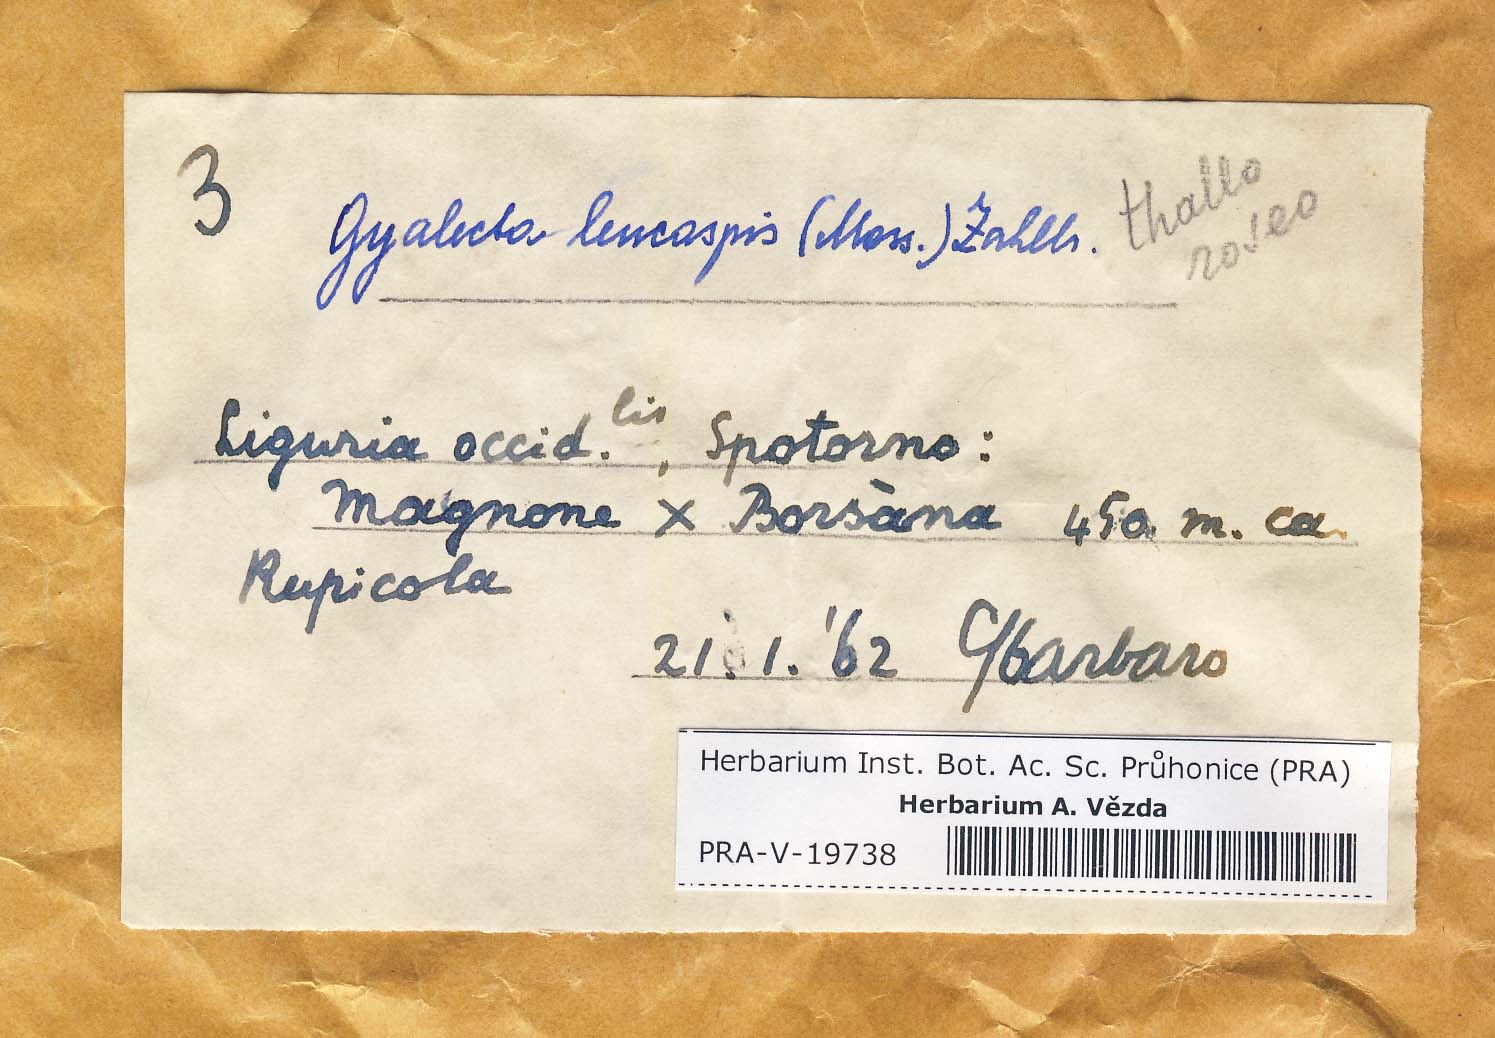 3
Gyalecta leucaspis (Mass.) Zahlbr.
thallo
roseo
Liguria occid.lis, Spotorno:
Magnone x Borsàna 450 m. ca.
Rupicola
21.1.'62 C Barbaro
Herbarium Inst. Bot. Ac. Sc. Průhonice (PRA)
Herbarium A. Vězda
PRA-V-19738